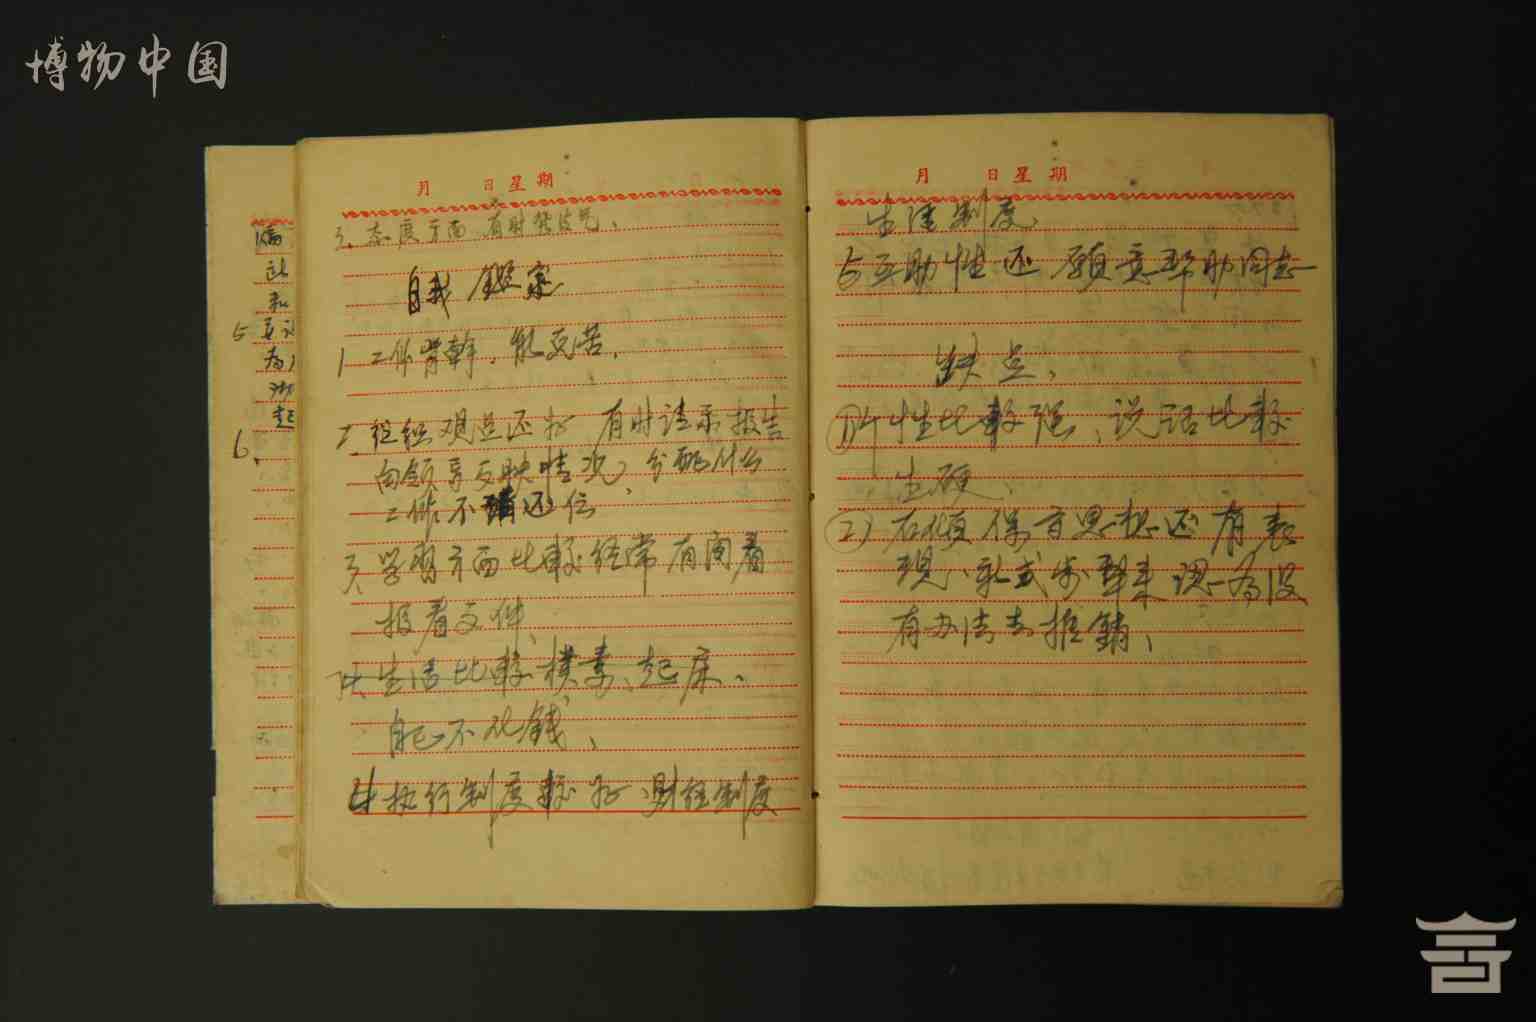 博物中国
月 日 星 期
3、态度方面 有时发脾气、
自我鑑定
1 工作肯幹、能吃苦、
2、组织观念还好 有时请示报告
向领导反映情况、分配什么
工作不 还
3、学習方面比較经常有阅看
报看文件、
生活比較樸素、起床、
自己不化錢、
4 执行制度較好、财经制度
5
6、
月 日 星 期
生活制度、
5 互助性还願意帮助同志
缺点、
(1)个性比較强、说话比較
生硬、
(2)右倾保守思想还有表
现、 認为没
有办法去推銷、